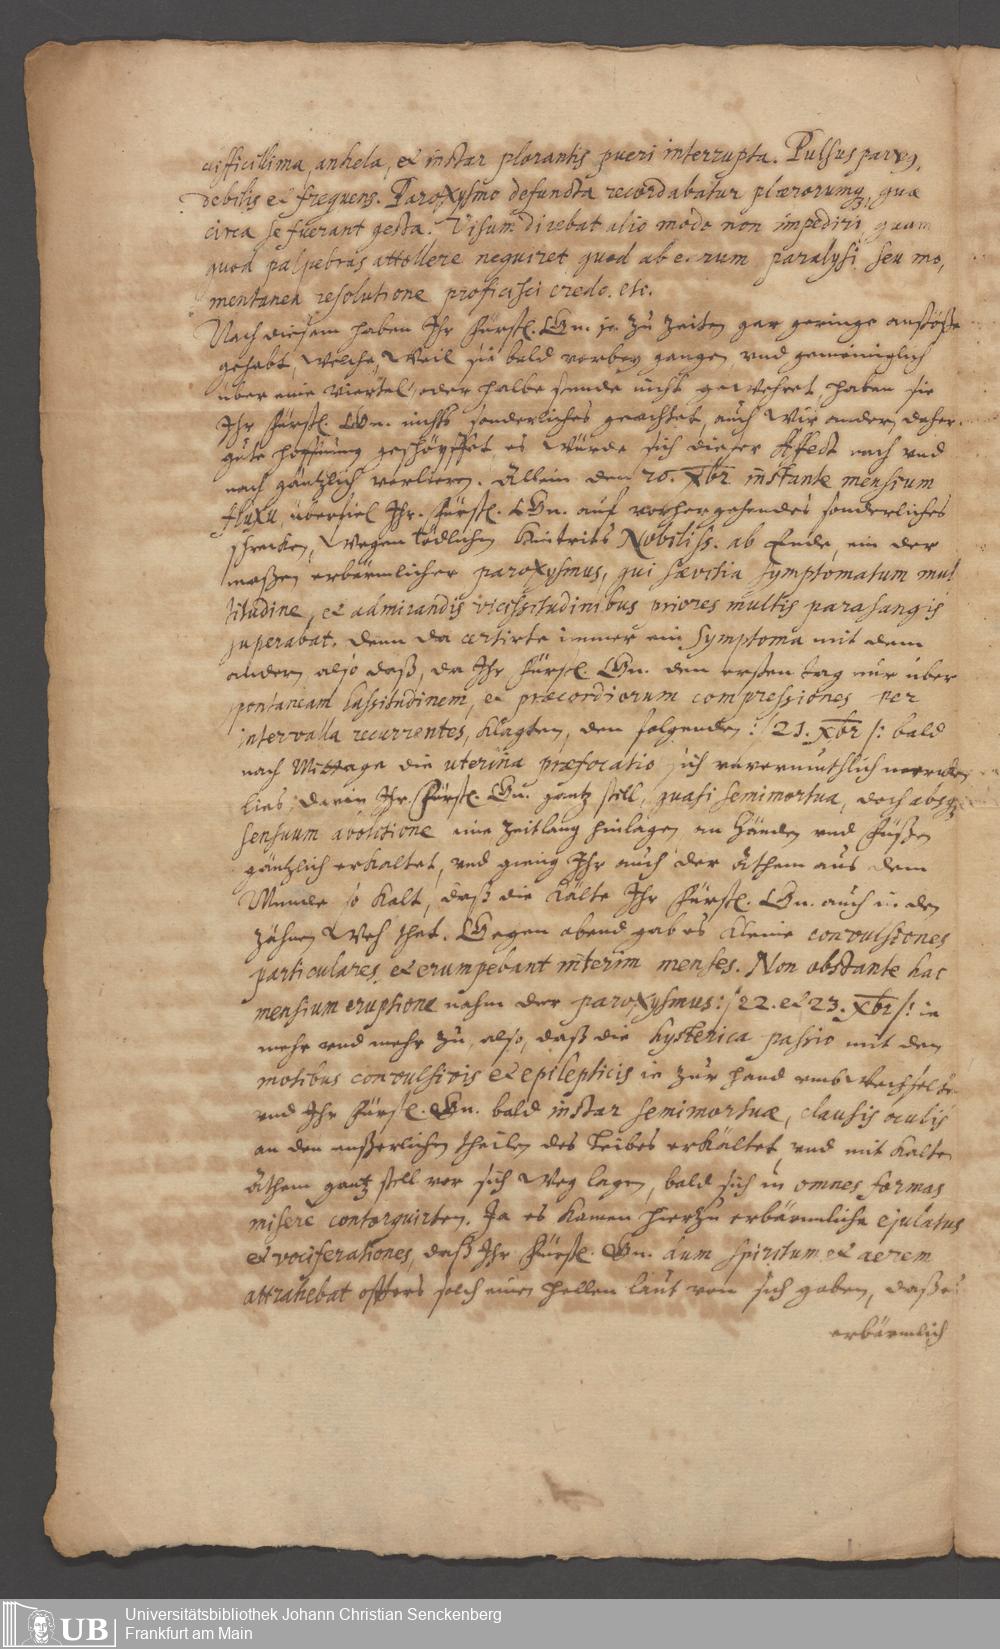 difficillima, anhela, et instar plorantis pueri interrupta. Pulsus parvus,
debilis et frequens. Paroxysmo defuncta recordabatur plærorumq, quæ
circa se fuerant gesta. Visum dicebat alio modo non impediri, quam
quod palpebras attollere nequiret, quod ab earum paralysi seu mo,
mentanea resolutione proficisci credo. etc.
Nach diesem haben Ihr Fürstl. Gn. je zu Zeiten gar geringe anstöße
gehabt, welche, weil sie bald vorbey gangen, vnd gemeiniglich
über eine viertel, oder halbe stunde nicht gewehret, haben sie
Ihr Fürstl. Gn. nichts sonderliches geachtet, auch wir andern daher
gute hoffnung geschöpffet, es würde sich dieser Affect nach vnd
nach gäntzlich verlieren. Allein den 20. Xbr instante mensium
fluxu, überfiel Ihr. Fürstl. Gn. auf vorhergehendes sonderliches
schrecken, wegen tödlichen hintrits Nobiliss. ab Ende, ein der
maßen erbärmlicher paroxysmus, qui sævitia symptomatum mul
titudine, et admirandis vicissitudinibus priores multis parasangis
superabat. Denn da certirte immer ein Symptoma mit dem
andern also daß, da Ihr Fürstl. Gn. den ersten tag nur über
spontaneam lassitudinem, et præcordiorum compressiones per
intervalla recurrentes, klagten, den folgenden :/ 21. Xbr /: bald
nach Mittage die uterina præfocatio sich unvermuthlich mercken
lies, darin Ihr. Fürstl. Gn. gantz still, quasi semimortua, doch absq
sensuum abolitione eine Zeitlang hinlagen an Händen vnd Füßen
gäntzlich erkaltet, vnd gieng Ihr auch der Athem aus dem
Munde so kalt, daß die Kälte Ihr Fürstl. Gn. auch in den
Zähnen Weh that. Gegen abend gab es kleine convulsiones
particulares, et erumpebant interim menses. Non obstante hac
mensium eruptione nahm der paroxysmus :/ 22. et 23. Xbr /: ie
mehr vnd mehr zu, also, daß die hysterica passio mit den
motibus convulsivis et epilepticis ie zur hand umbwechselte
vnd Ihr Fürstl. Gn. bald instar semimortuæ, clausis oculis
an den eußerlichen theilen des Leibes erkältet, vnd mit kalten
Athem gantz still vor sich weg lagen, bald sich in omnes formas
misere contorquirten. Ja es kamen hierzu erbärmliche ejulatus
et vociferationes, daß Ihr Fürstl. Gn. dum spiritum et aerem
attrahebat offters solch einen hellen laut von sich gaben, daß es
erbärmlich
UB
Universitätsbibliothek Johann Christian Senckenberg
Frankfurt am Main